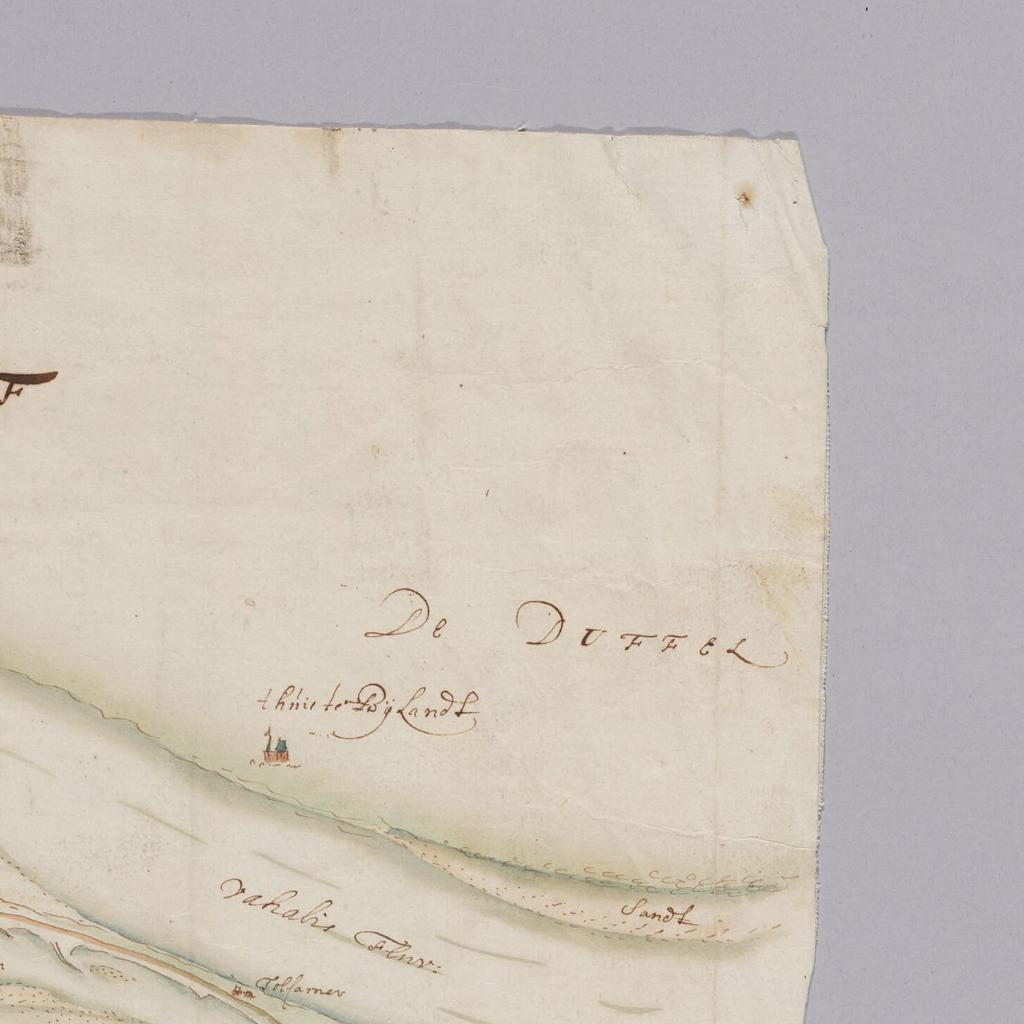 F
De DUFFEL
thuis ter Bÿlandt
Sandt
Vahalis Fluv:
Tolkamer